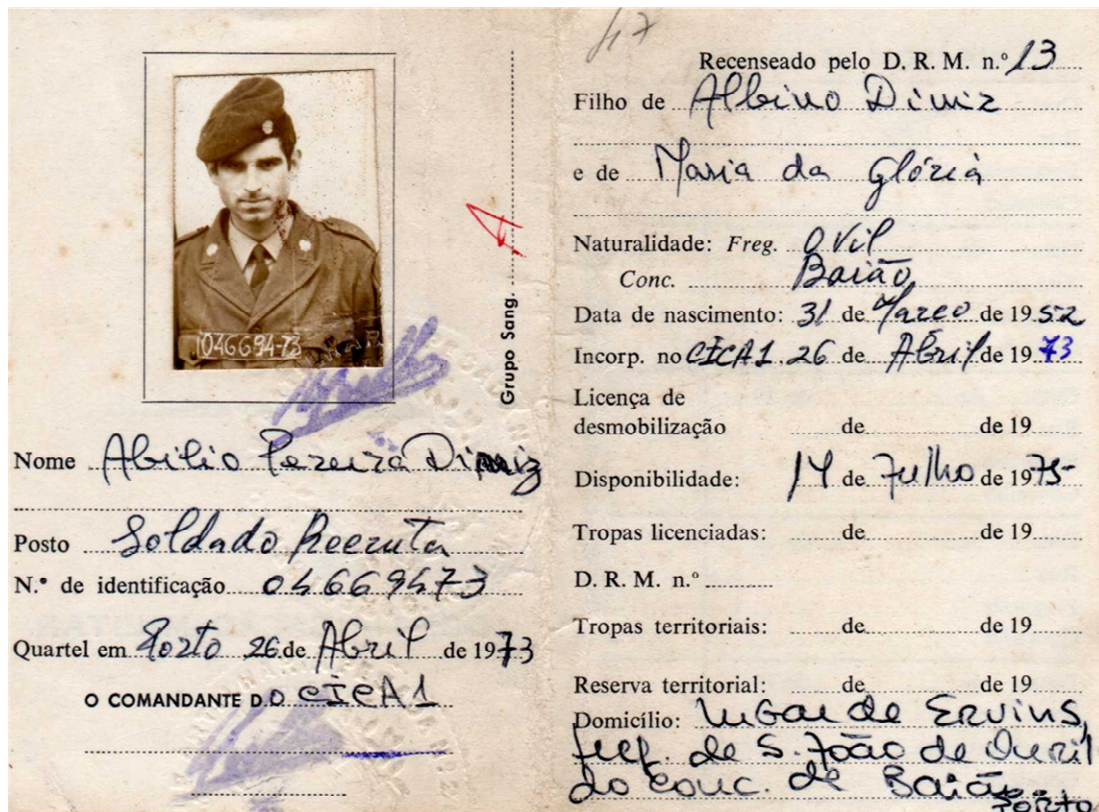 1046694-73
Grupo Sang. A
Nome Abilio Pereira Diniz
Posto Soldado Recruta
N.º de identificação 04669473
Quartel em Porto 26 de Abril de 1973
O COMANDANTE DO CICA1
47
Recenseado pelo D. R. M. n.º 13
Filho de Albino Diniz
e de Maria da Glória
Naturalidade: Freg. Ovil
Conc. Baião
Data de nascimento: 31 de Março de 1952
Incorp. no CICA1 26 de Abril de 1973
Licença de
desmobilização de de 19
Disponibilidade: 14 de Julho de 1975
Tropas licenciadas: de de 19
D. R. M. n.º
Tropas territoriais: de de 19
Reserva territorial: de de 19
Domicílio: Lugar de Ervins,
freg. de S. João de Ouvil
do conc. de Baião
Porto